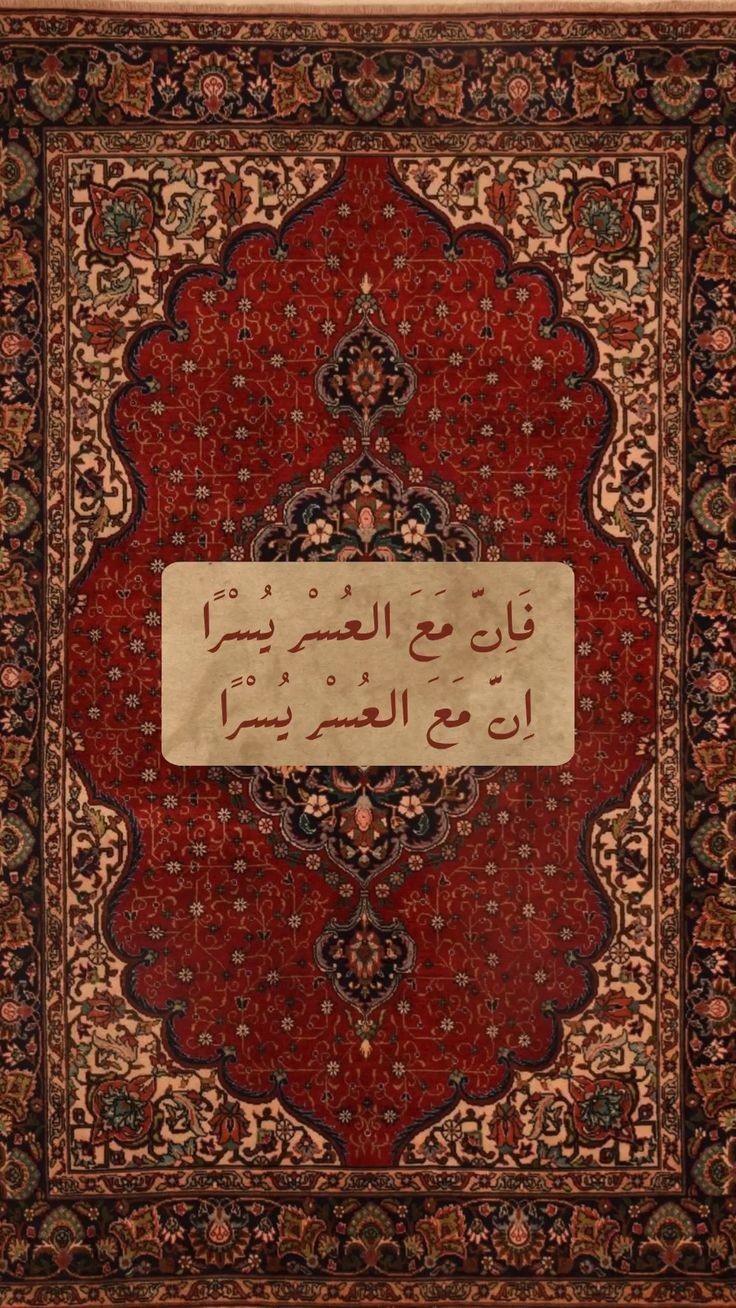 فَاِنّ مَعَ العُسْرِ يُسْرًا
اِنّ مَعَ العُسْرِ يُسْرًا